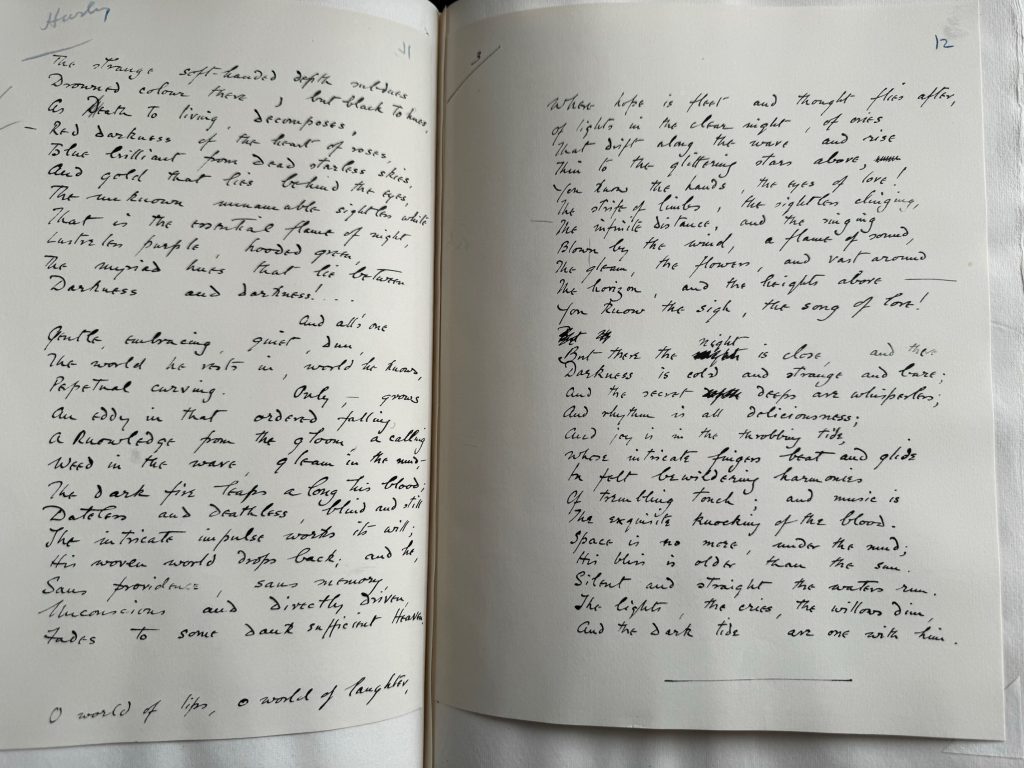 11
The strange soft-handed depth subdues
Drowned colour there, but black to hues,
As Death to living, decomposes,
— Red darkness of the heart of roses,
Blue brilliant from Dead starless skies,
And gold that lies behind the eyes,
The unknown unnameable sightless white
That is the essential flame of night,
Lustreless purple, hooded green,
The myriad hues that lie between
Darkness and darkness! . . .
And all's one
Gentle, embracing, quiet, dun,
The world he rests in, world he knows,
Perpetual curving. Only — grows
An eddy in that ordered falling,
A Knowledge from the gloom, a calling
Weed in the wave, gleam in the mud —
The Dark fire leaps along his blood;
Dateless and Deathless, blind and still
The intricate impulse works its will;
His woven world drops back; and he,
Sans providence, sans memory,
Unconscious and Directly Driven,
Fades to some Dank sufficient Heaven.
O world of lips, O world of laughter,
3
12
Where hope is fleet and thought flies after,
Of lights in the clear night, of cries
That drift along the wave and rise
Thin to the glittering stars above,
You know the hands, the eyes of love!
The strife of limbs, the sightless clinging,
The infinite distance, and the singing
Blown by the wind, a flame of sound,
The gleam, the flowers, and vast around
The horizon, and the heights above —
You know the sigh, the song of love!
But there the night is close, and there
Darkness is cold and strange and bare;
And the secret deeps are whisperless;
And rhythm is all deliciousness;
And joy is in the throbbing tide,
Whose intricate fingers beat and glide
In felt bewildering harmonies
Of trembling touch; and music is
The exquisite Knocking of the blood.
Space is no more, under the mud;
His bliss is older than the sun.
Silent and straight the waters run.
The lights, the cries, the willows dim,
And the Dark tide are one with him.